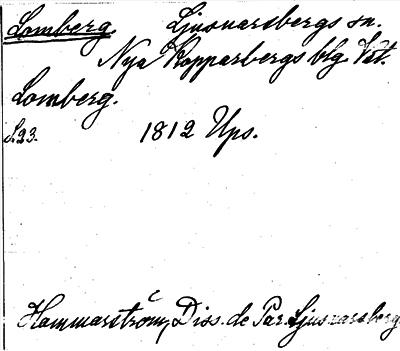 Lomberg. Ljusnarsbergs sn.
Nya Kopparbergs blg. Vstm.
Lomberg.
S.23. 1812 Ups.
Hammarström, Diss. de Par. Ljusnarsberg